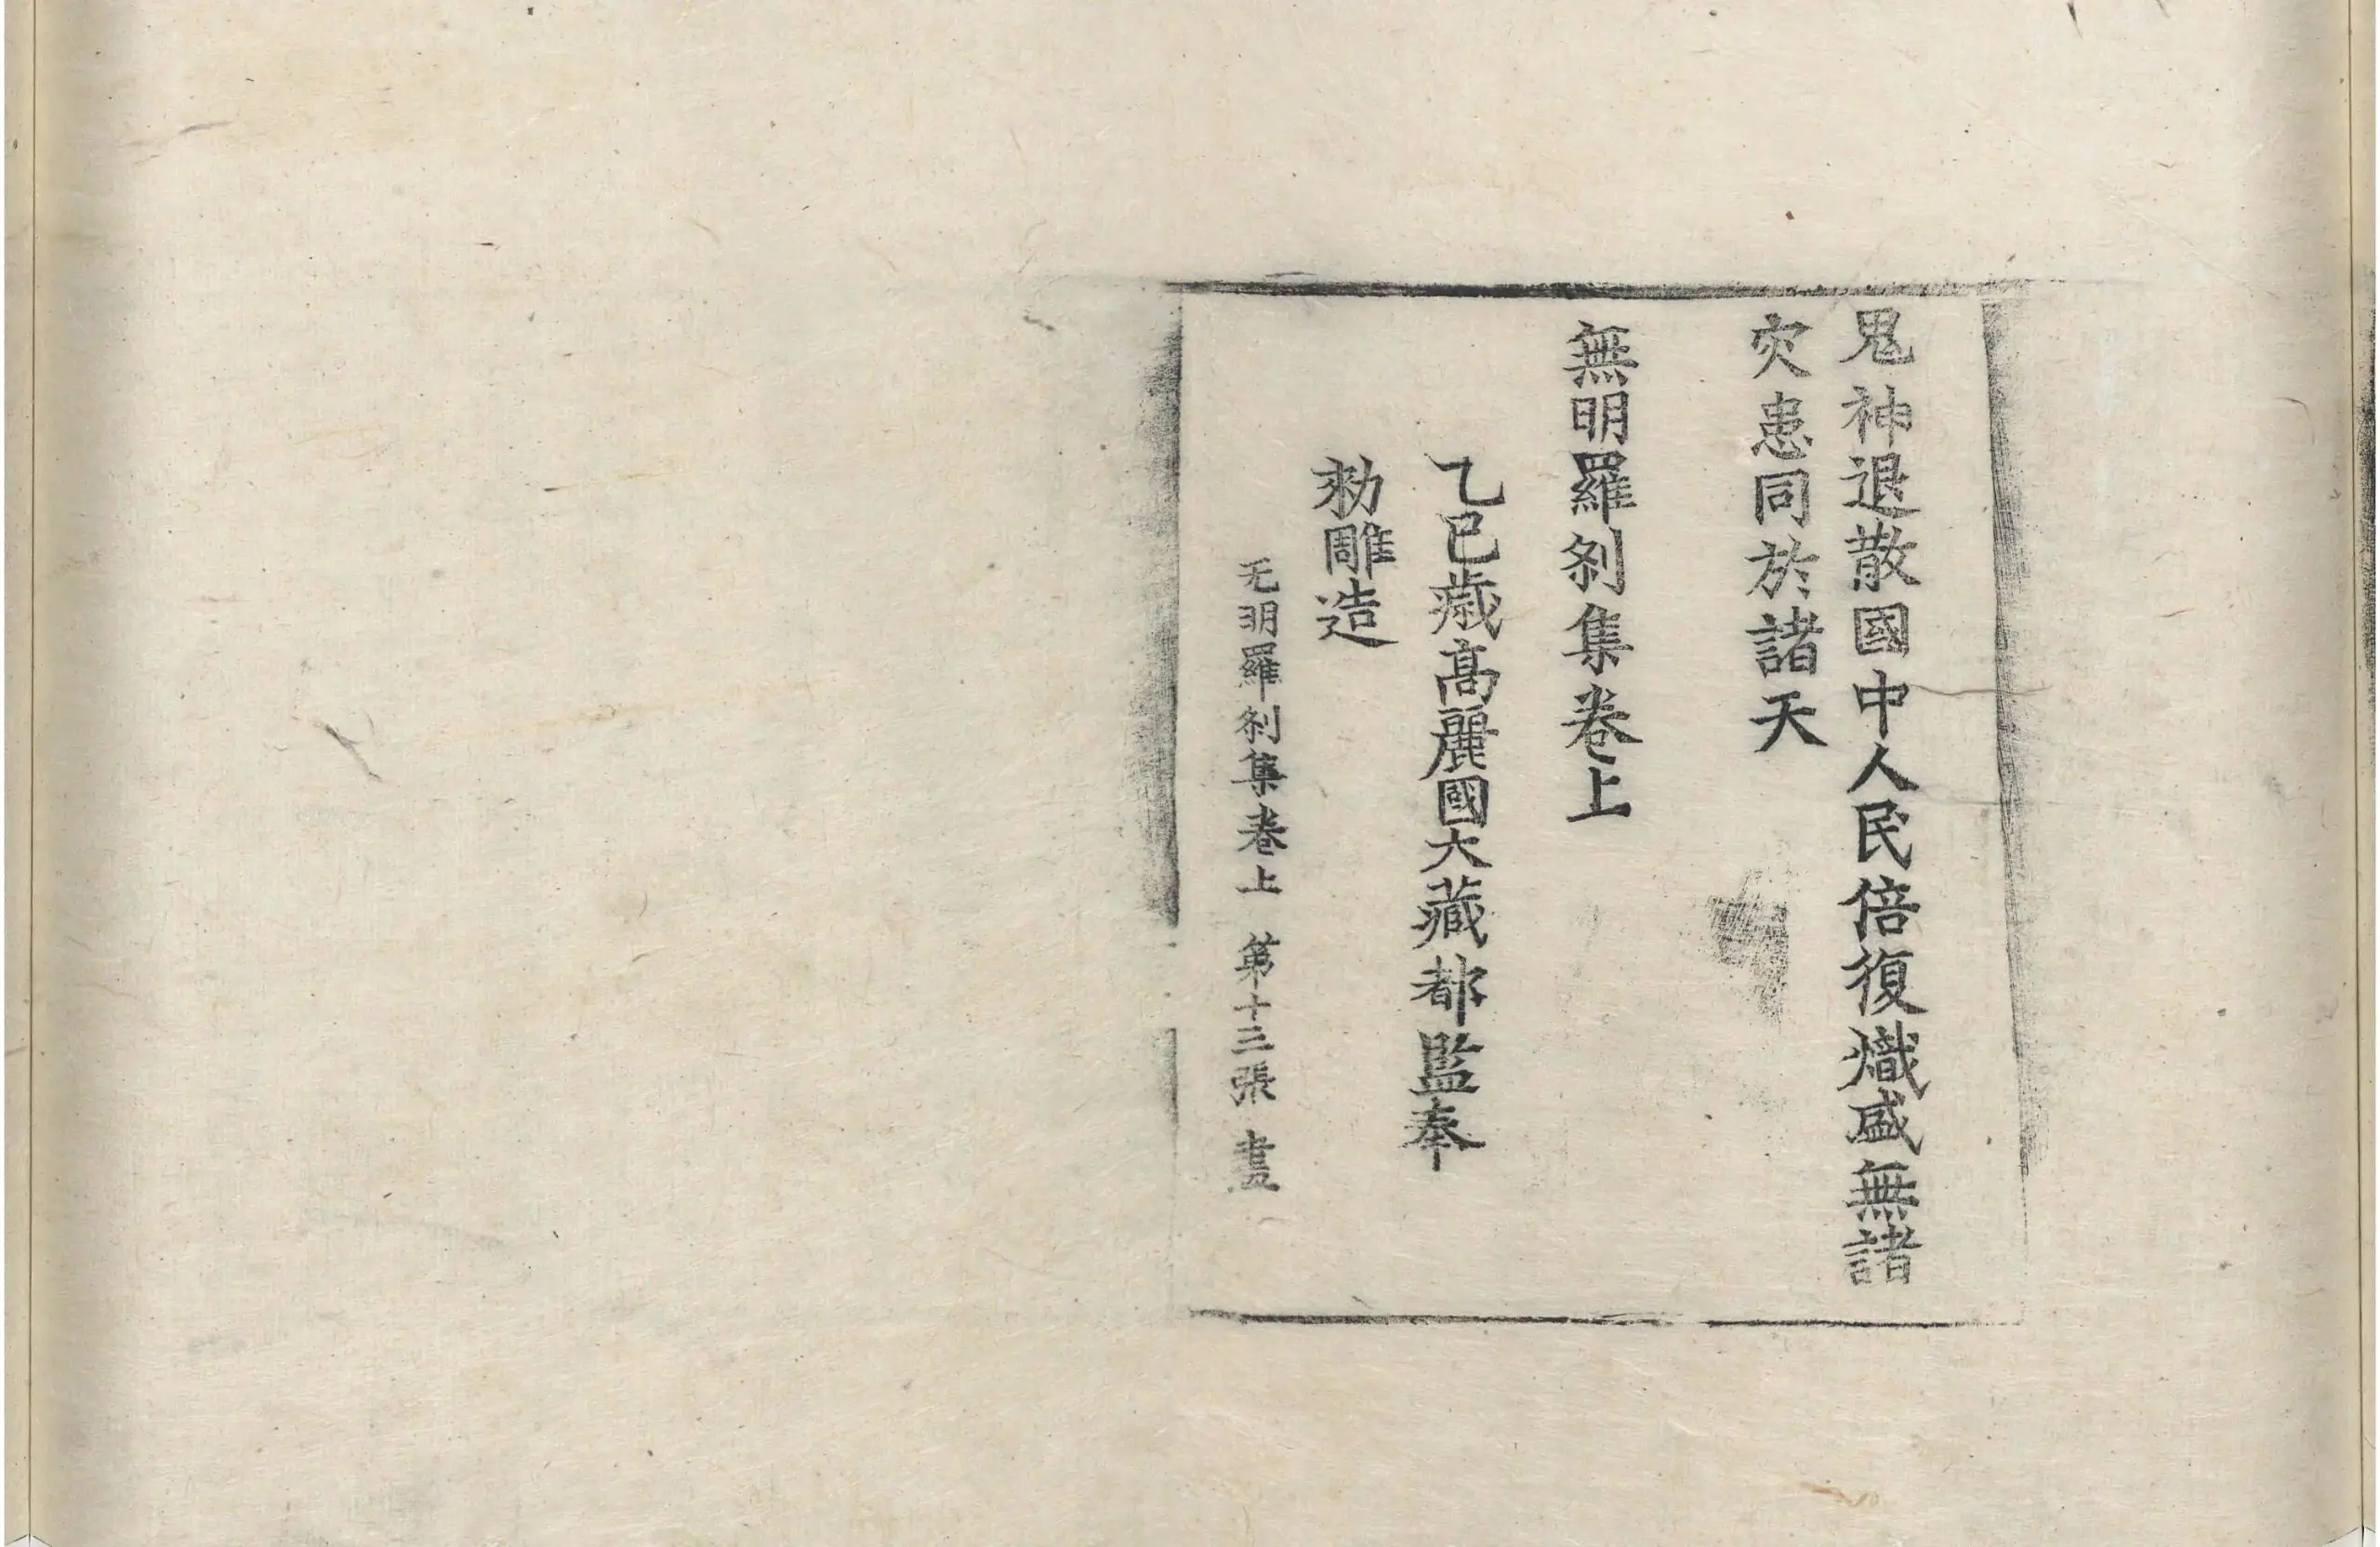 鬼神退散國中人民倍復熾盛無諸
灾患同於諸天
無明羅刹集卷上
乙巳歲高麗國大藏都監奉
勅雕造
无明羅刹集卷上 第十三張 畫